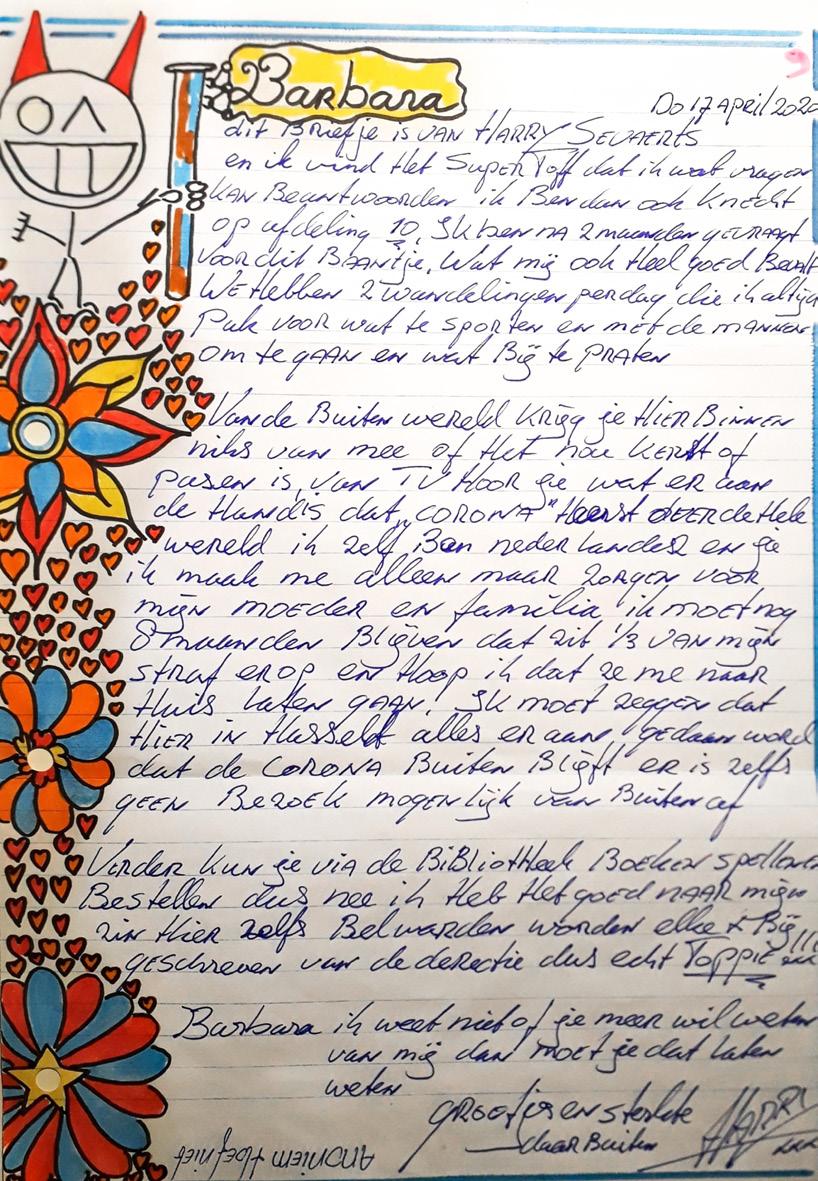 Barbara
Do 17 April 2020
dit Briefje is VAN HARRY SEVAERTS
en ik vind Het SUPER Toff dat ik wat vragen
KAN Beantwoorden ik Ben dan ook Knecht
op afdeling 10. Ik ben NA 2 maanden gevraagt
voor dit BAANtje, Wat mij ook Heel goed Bevalt
We Hebben 2 wandelingen per dag die ik altijd
Pak voor wat te sporten en met de MANNEN
om te gaan en wat Bij te PRATEN
Van de Buiten wereld Krijg je HIER BINNEN
niks van mee of Het nou KERst of
pasen is, van TV Hoor je wat er aan
de Hand is dat "CORONA" Heerst OVER de Hele
wereld ik zelf Ben neder landes en je
ik maak me alleen maar zorgen voor
mijn moeder en familia, ik moet nog
8 maanden Blijven dat zit 1/3 VAN mijn
straf erop en Hoop ik dat ze me naar
Huis laten gaan. Ik moet zeggen dat
HIER IN Hasselt alles er aan gedaan word
dat de CORONA Buiten Blijft er is zelfs
geen Bezoek mogenlijk van Buiten af
Verder kun je via de BiBliotHeek Boeken spellen
Bestellen dus nee ik Heb Het goed naar mijn
zin Hier zelfs Bel warden worden elke x Bij
geschreven van de derectie dus echt Toppie !!!
Barbara ik weet niet of je meer wil weten
van mij dan moet je dat laten
weten
groetjes en sterkte
daar Buiten HARRY
xxx
ANONIEM Hoef niet